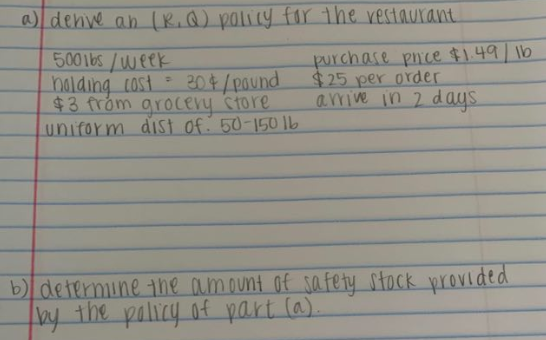 a) derive an (R,Q) policy for the restaurant
500lbs/week purchase price $1.49/lb
holding cost = 30¢/pound $25 per order
$3 from grocery store arrive in 2 days
uniform dist of: 50-150 lb
b) determine the amount of safety stock provided
by the policy of part (a).